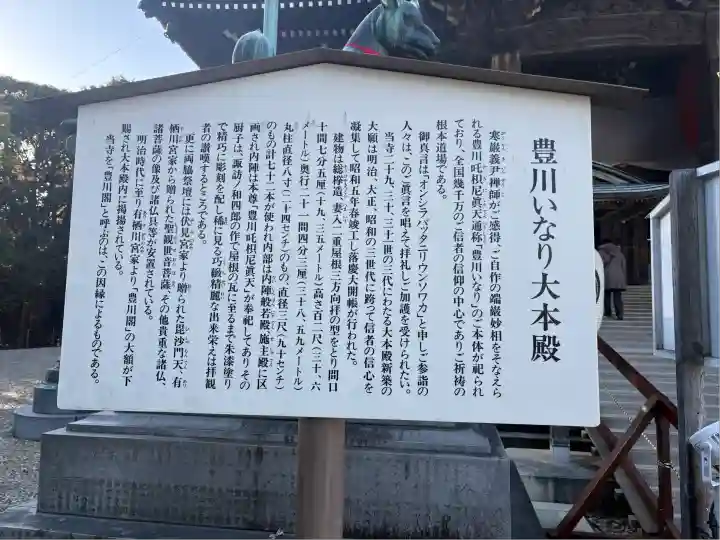 豊川いなり大本殿
寒巌義尹禅師がご感得、ご自作の端厳妙相をそなえら
れる豊川吒枳尼眞天通称「豊川いなり」のご本体が祀られ
ており、全国幾千万のご信者の信仰の中心でありご祈祷の
根本道場である。
御真言は「オンシラバッタニリウンソワカ」と申しご参詣の
人々は、このご眞言を唱えて拝礼しご加護を受けられたい。
当寺二十九、三十、三十一世の三代にわたる大本殿新築の
大願は明治、大正、昭和の三世代に跨って信者の信心を
凝集して昭和五年春竣工し落慶大開帳が行われた。
建物は総欅造、妻入二重屋根三方向拝の型をとり間口
十間七分五厘(十九、三五メートル)高さ百二尺(三十、六
メートル)奥行二十一間四分三厘(三十八、五九メートル)
丸柱直径八寸(二十四センチ)のもの、直径三尺(九十センチ)
のもの計七十二本が使われ内部は内陣、般若殿、施主殿に区
画され内陣は本尊「豊川吒枳尼眞天」が奉祀してありその
厨子は、諏訪ノ和四郎の作で屋根の瓦に至るまで朱漆塗り
で精巧に彫刻を配し稀に見る巧緻精麗な出来栄えは拝観
者の讃嘆するところである。
更に両脇祭壇には伏見宮家より贈られた毘沙門天、有
栖川宮家から贈られた聖観世音菩薩、その他貴重な諸仏、
諸菩薩の像及び諸仏具等が安置されている。
明治時代に至り有栖川宮家より「豊川閣」の大額が下
賜され大本殿内に掲揚されている。
当寺を「豊川閣」と呼ぶのは、この因縁によるものである。